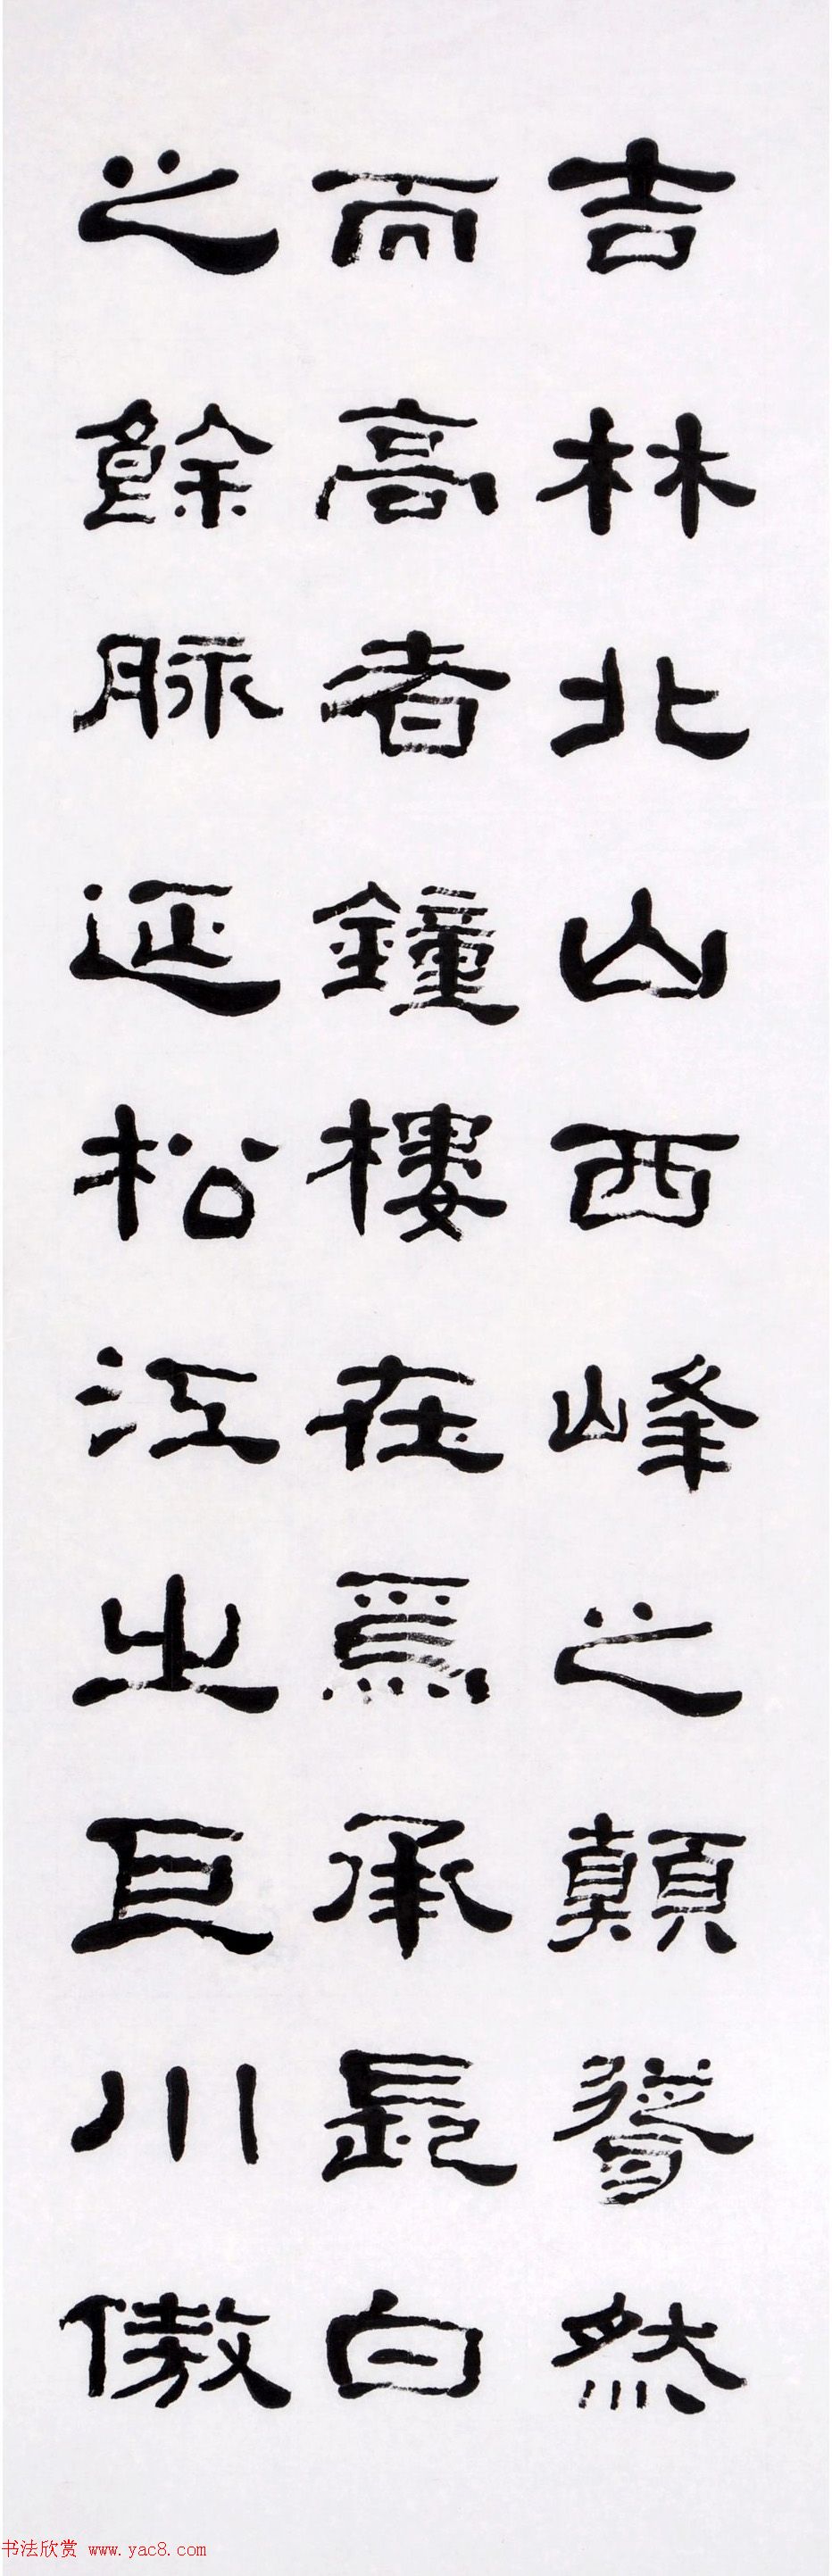 吉林北山西峰之顛聳然
而高者鐘樓在焉承長白
之餘脈延松江出巨川傲
书法欣赏 www.yac8.com